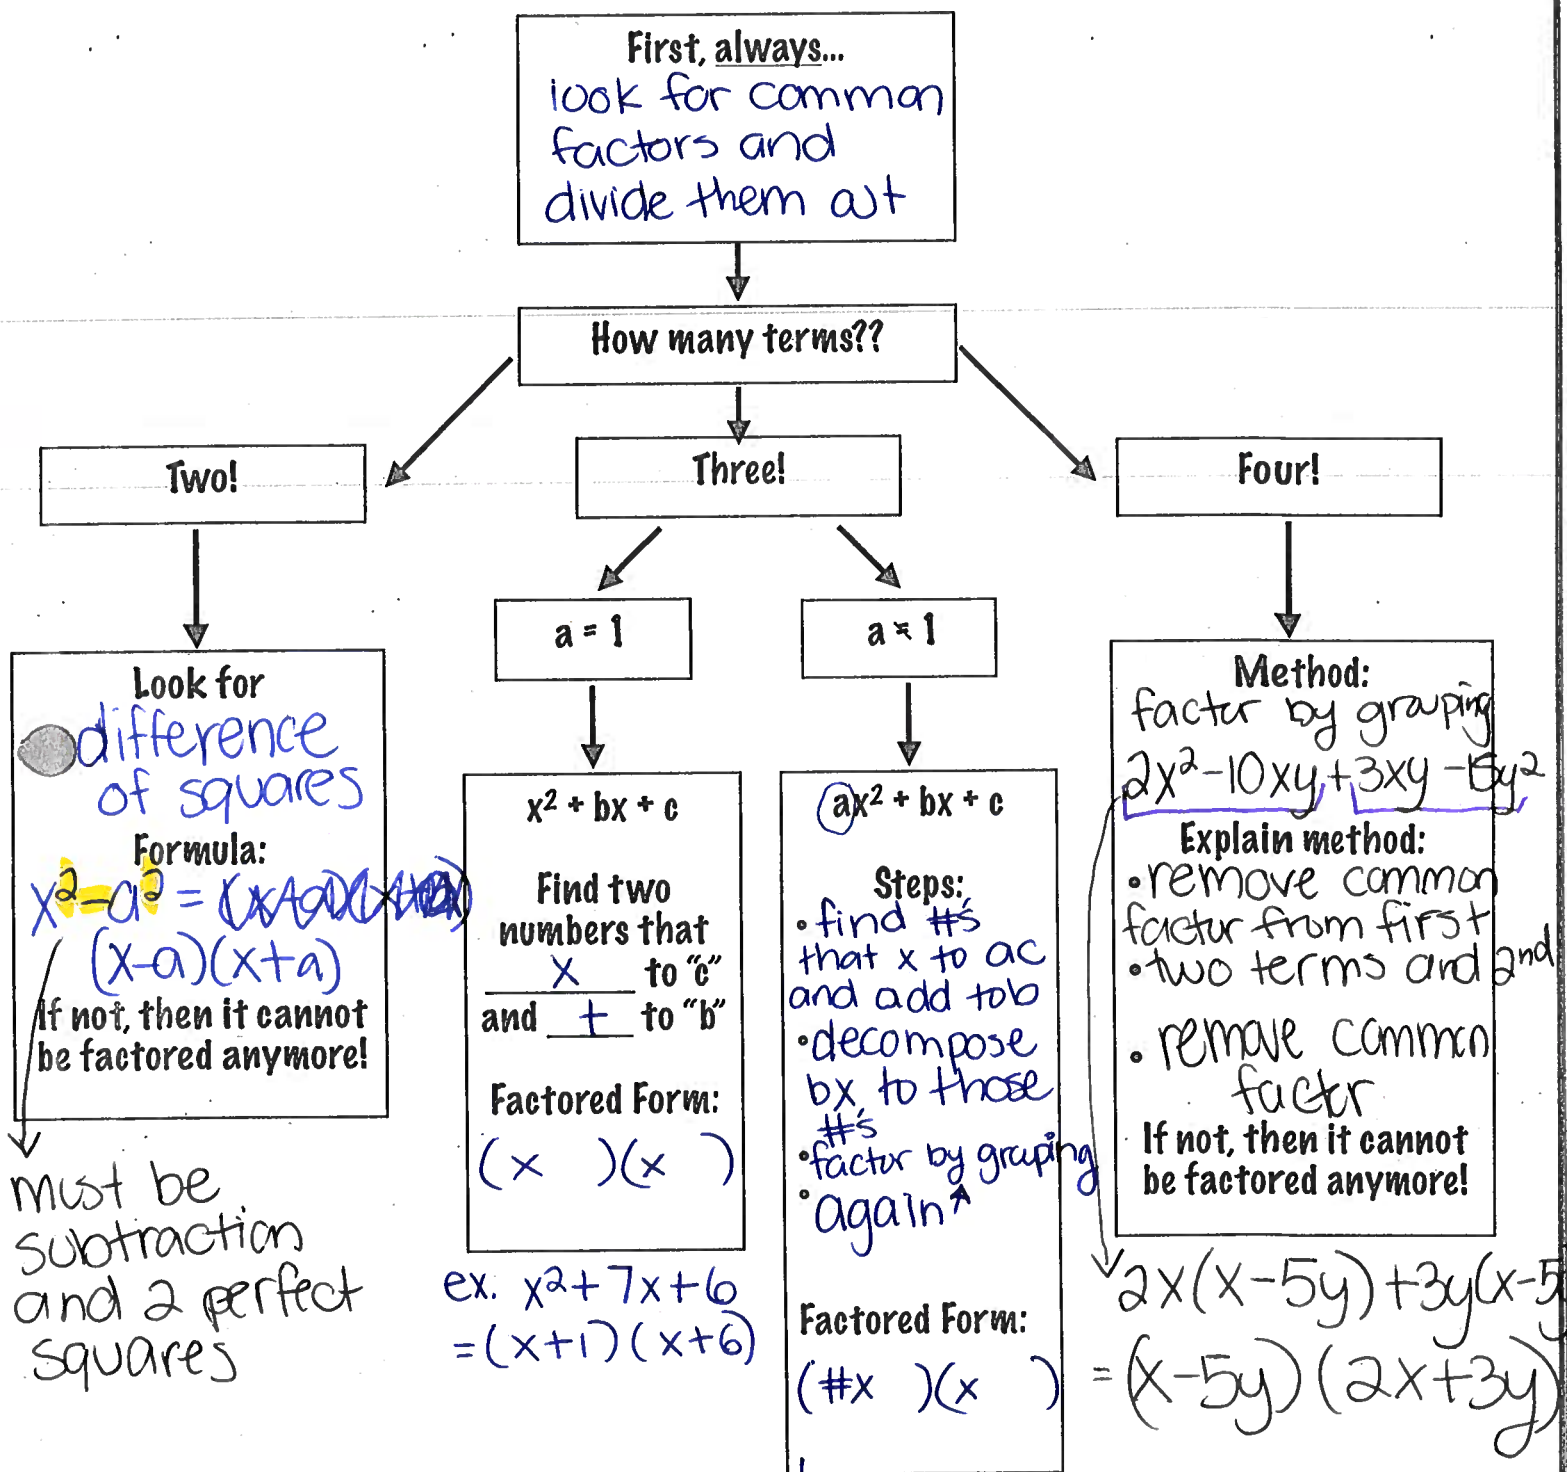 First, always...
look for common
factors and
divide them out
How many terms??
Two!
Three!
Four!
a = 1
a ≠ 1
Look for
difference
of squares
Formula:
x² - a² =
(x-a)(x+a)
If not, then it cannot
be factored anymore!
must be
subtraction
and 2 perfect
squares
x² + bx + c
Find two
numbers that
x to "c"
and + to "b"
Factored Form:
(x )(x )
ex. x²+7x+6
=(x+1)(x+6)
ax² + bx + c
Steps:
• find #'s
that x to ac
and add to b
• decompose
bx to those
#'s
• factor by grouping
• again
Factored Form:
(#x )(x )
Method:
factor by grouping
2x²-10xy+3xy-15y²
Explain method:
• remove common
factor from first
• two terms and 2nd
• remove common
factor
If not, then it cannot
be factored anymore!
2x(x-5y)+3y(x-5
=(x-5y)(2x+3y)